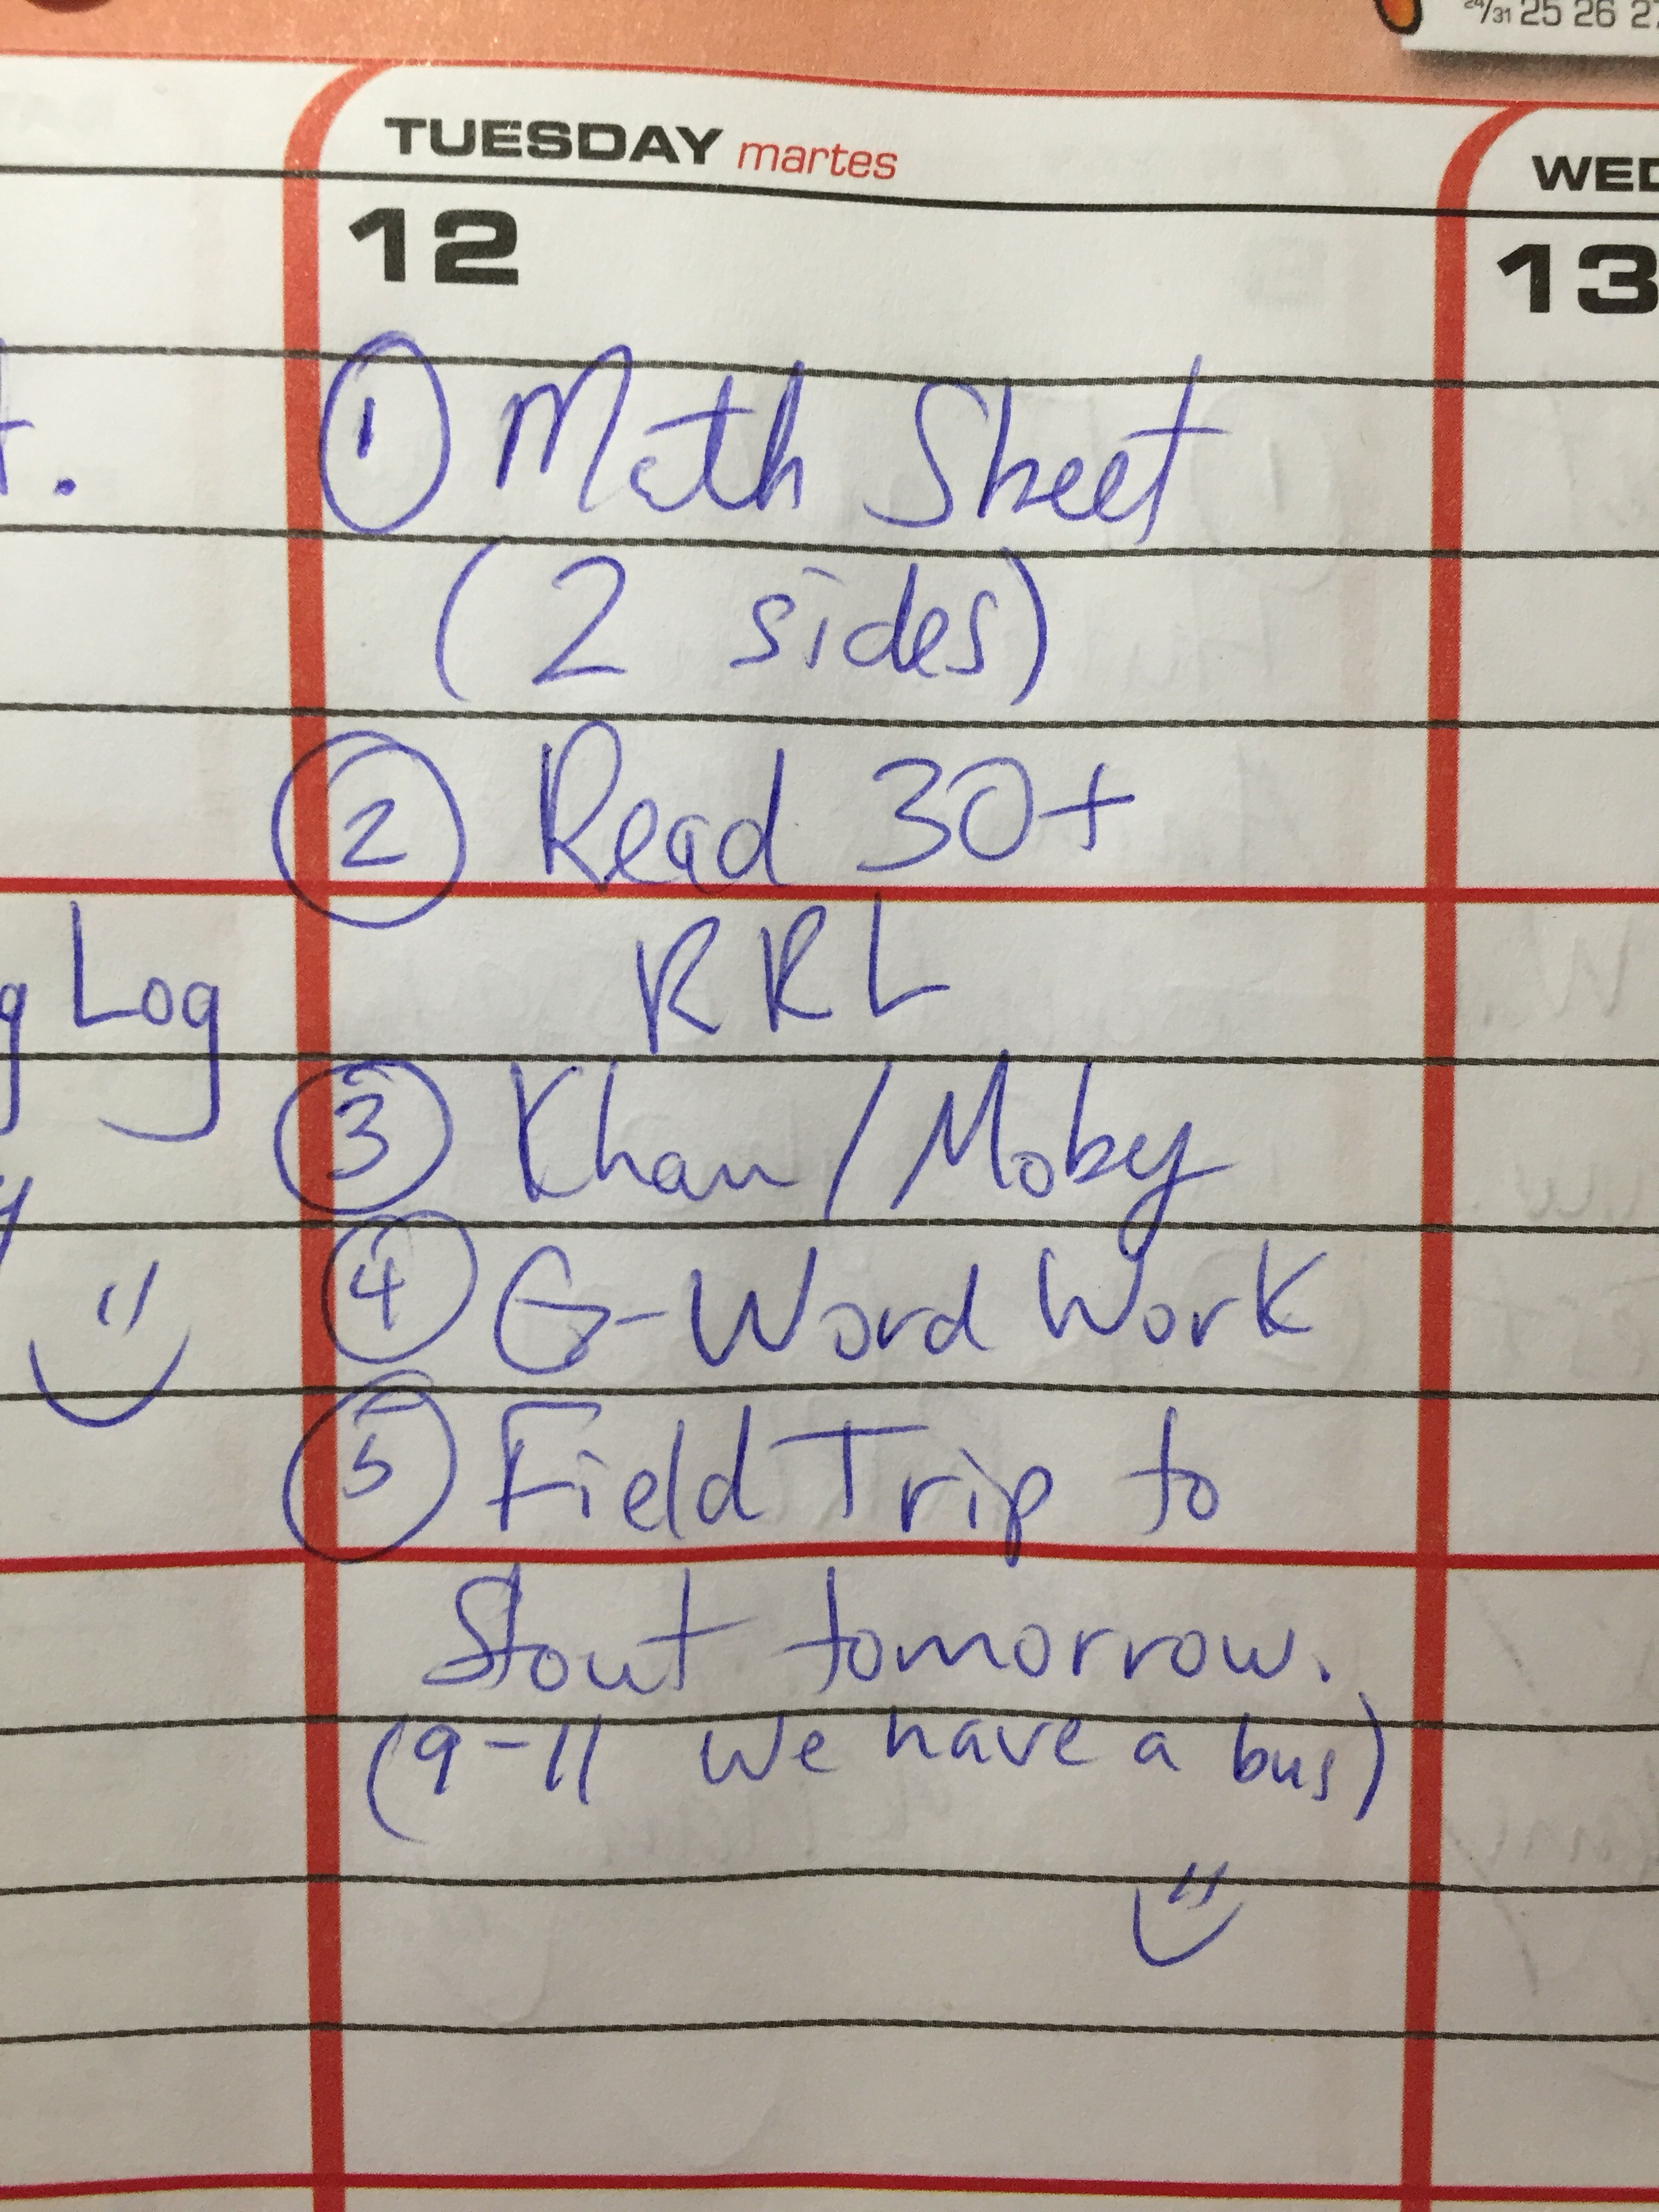 24/31 25 26 27
TUESDAY martes
WED
12
13
① Math Sheet
(2 sides)
② Read 30+
RRL
g Log
③ Khan/Moby
④ G-Word Work
⑤ Field Trip to
Stout tomorrow.
(9-11 we have a bus)